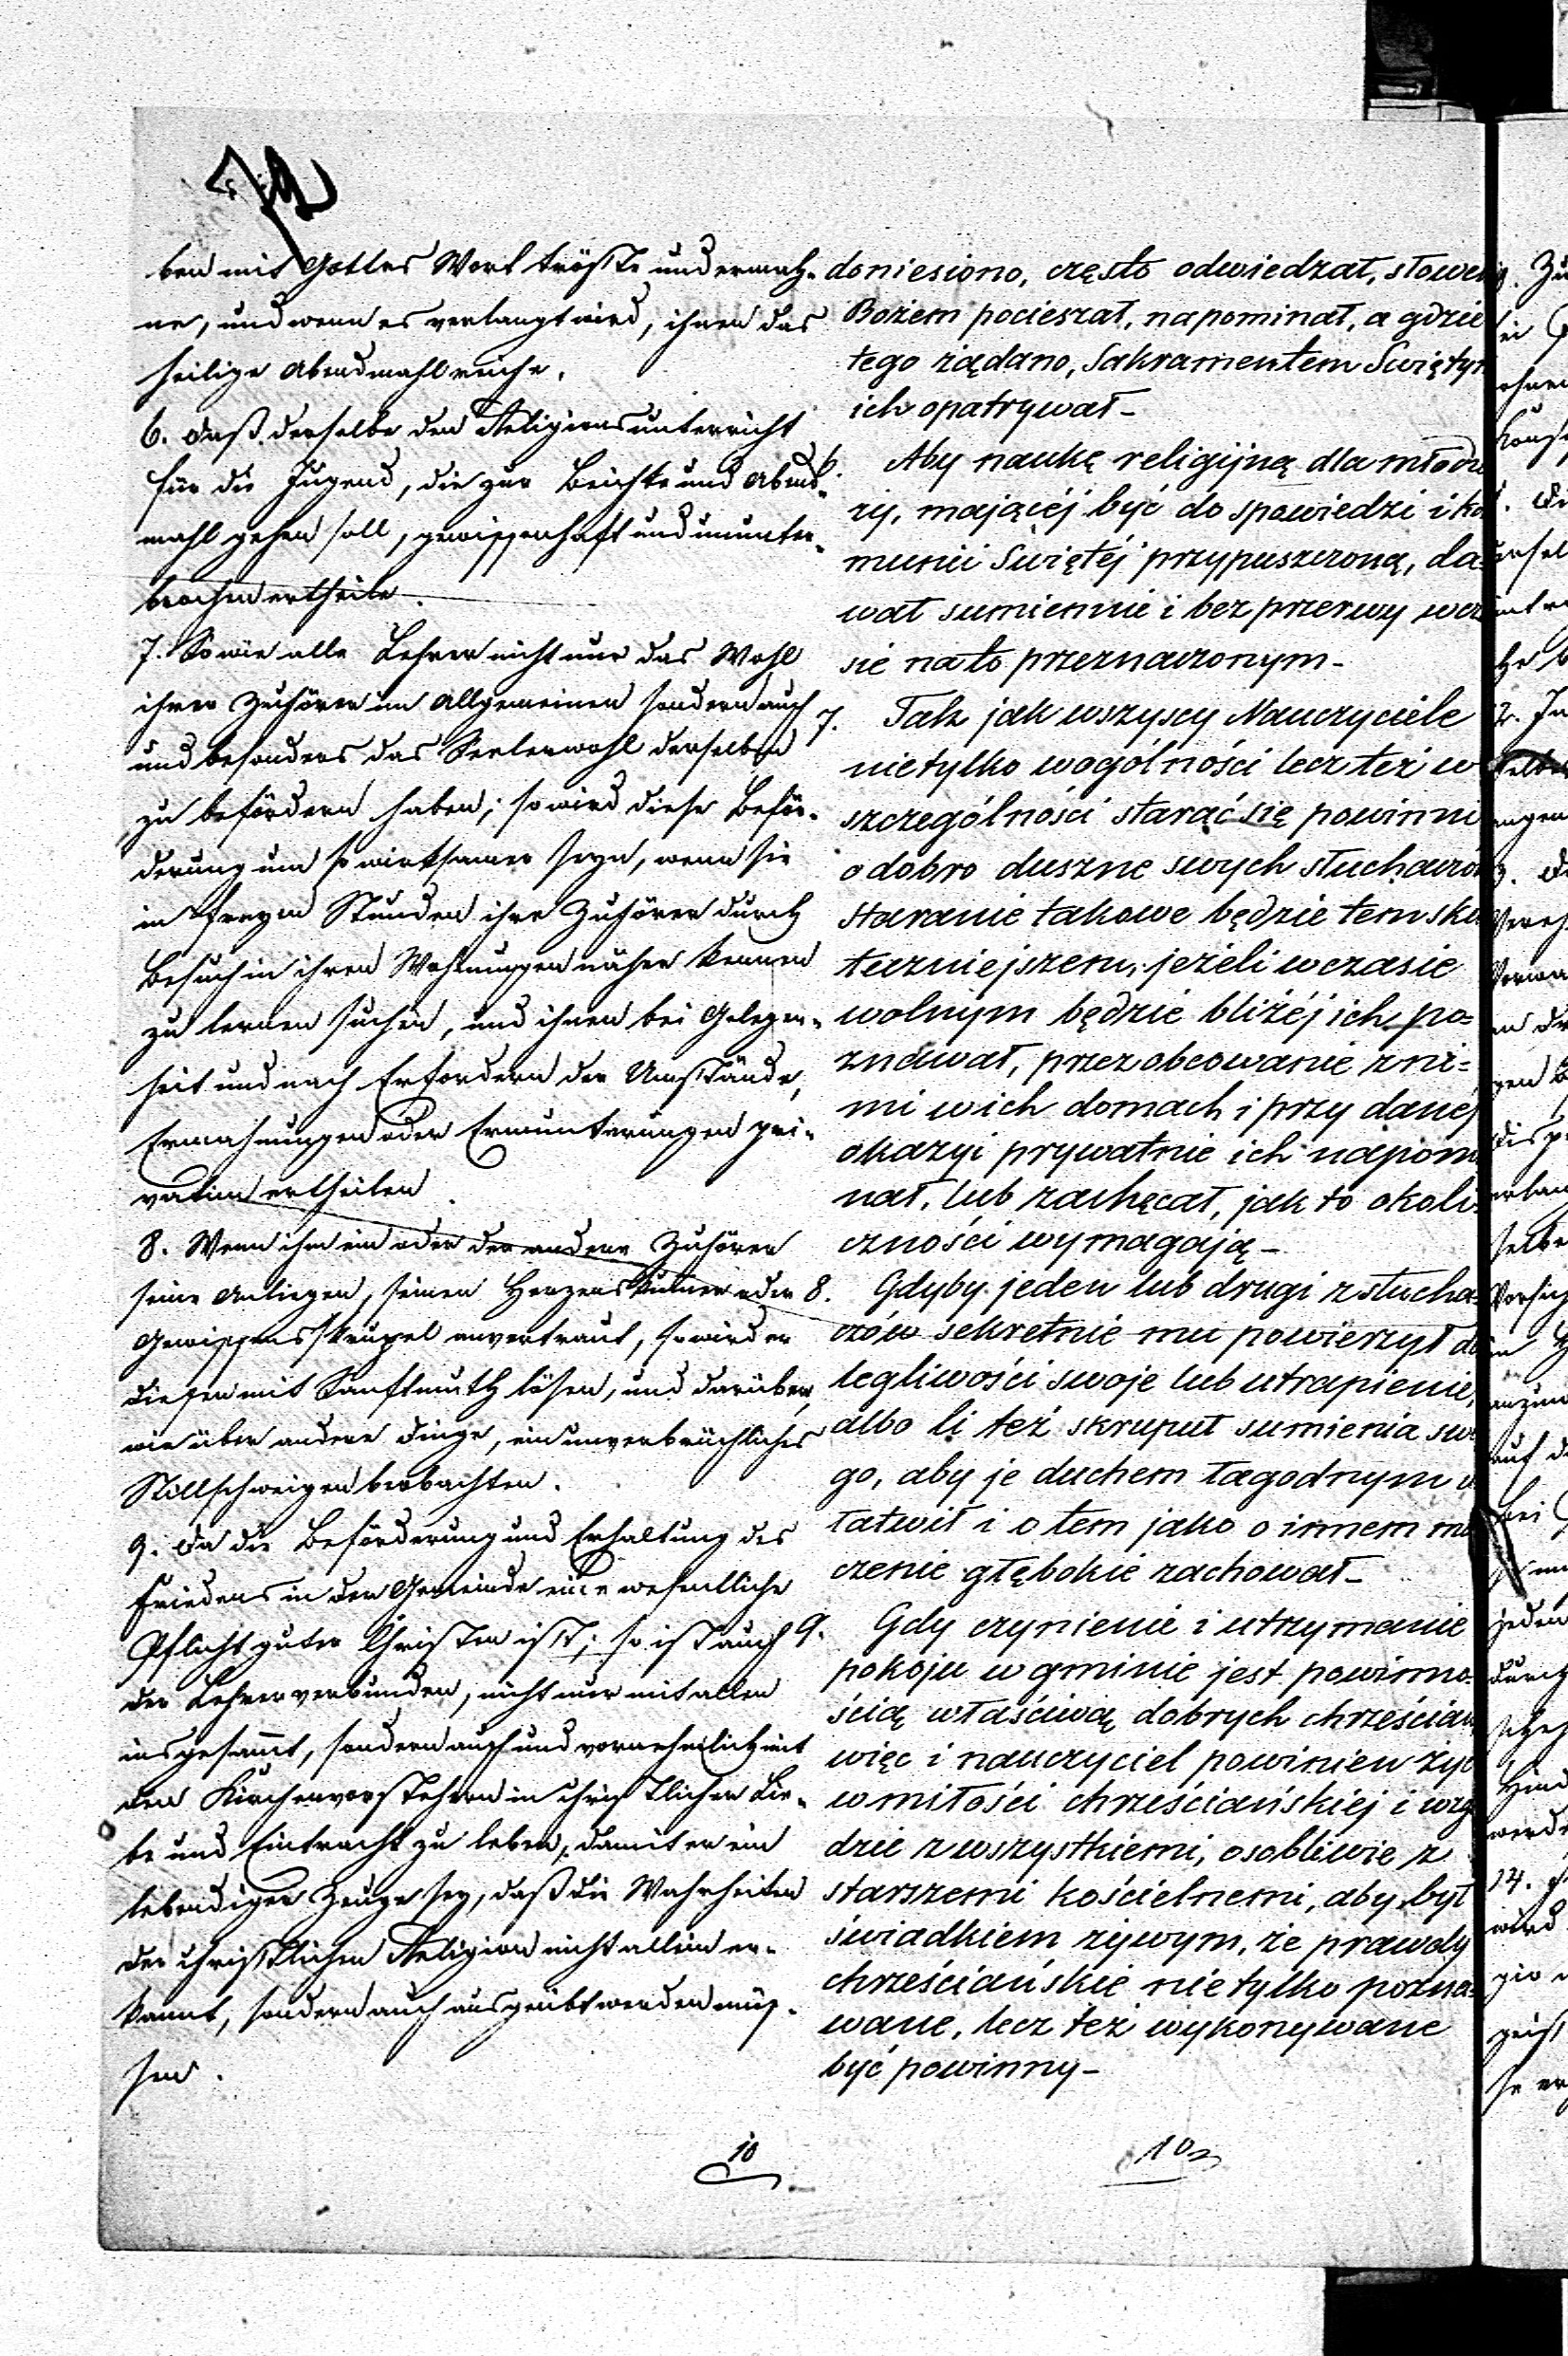 ben mit Gottes Wort tröste und ermah-
ne, und wenn es verlangt wird, ihnen das
heilige Abendmahl reiche.
6. Daß derselbe den Religionsunterricht
für die Jugend, die zur Beichte und Abend-
mahl gehen soll, gewissenhaft und ununter-
brochen ertheile.
7. So wie alle Lehrer nicht nur das Wohl
ihrer Zuhörer im Allgemeinen sondern auch
und besonders das Seelenwohl derselben
zu befördern haben; so wird diese Beför-
derung um so wirksamer seyn, wenn sie
in freyen Stunden ihre Zuhörer durch
Besuch in ihren Wohnungen näher kennen
zu lernen suchen, und ihnen bei Gelegen-
heit und nach Erfordern der Umstände,
Ermahnungen oder Ermunterungen pri-
vatim ertheilen.
8. Wenn ihm ein oder der andere Zuhörer
seine Anliegen, seinen Herzenskummer oder
Gewissensskrupel anvertraut, so wird er
diesen mit Sanftmuth lösen, und darüber,
wie über andere Dinge, ein unverbrüchliches
Stillschweigen beobachten.
9. Da die Beförderung und Erhaltung des
Friedens in der Gemeinde eine wesentliche
Pflicht guter Christen ist; so ist auch
der Lehrer verbunden, nicht nur mit allen
insgesammt, sondern auch und vornehmlich mit
den Kirchenvorstehern in christlicher Lie-
be und Eintracht zu leben, damit er ein
lebendiger Zeuge sey, daß die Wahrheiten
der christlichen Religion nicht allein er-
kannt, sondern auch ausgeübt werden müs-
sen.
10
doniesiono, często odwiedzał, słowem
Bożem pocieszał, napominał, a gdzie
tego żądano, Sakramentem Świętym
ich opatrywał_
6. Aby naukę religijną dla młodzie
ży, mającéj być do spowiedzi i ko
munii Świętéj przypuszczoną, da=
wał sumiennie i bez przerwy w cza
sie na to przeznaczonym_
7. Tak jak wszyscy Nauczyciele
nietylko wogólności lecz też w
szczególności starać się powinni
o dobro duszne swych słuchaczów
staranie takowe będzie tem sku
teczniejszem, jeżeli w czasie
wolnym będzie bliżéj ich po=
znawał, przez obcowanie z ni=
mi w ich domach i przy danéj
okazyi prywatnie ich napomi
nał, lub zachęcał, jak to okoli
czności wymagają_
8. Gdyby jeden lub drugi z słucha=
czów sekretnie mu powierzył do
legliwości swoje lub utrapienie,
albo li też skrupuł sumienia swe
go, aby je duchem łagodnym u
łatwił i o tem jako o innem mil
czenie głębokie zachował_
9. Gdy czynienie i utrzymanie
pokoju w gminie jest powinno=
ścią właściwą dobrych chrześcian
więc i nauczyciel powinien żyć
w miłości chrześciańskiéj i zgo
dzie z wszystkiemi, osobliwie z
starszemi kościelnemi, aby był
świadkiem żywym, że prawdy
chrześciańskie nie tylko pozna=
wane, lecz też wykonywane
być powinny_
10